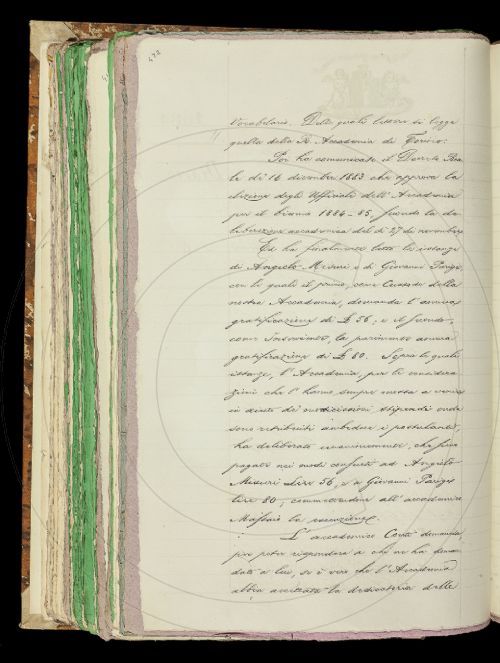 472
Vocabolario. Delle quali lettere si legge
quella della R. Accademia di Torino.
Poi ha comunicato il Decreto Rea-
le di 16 dicembre 1883 che approva la
elezione degli Uffiziali dell'Accademia
per il biennio 1884-85, secondo la de-
liberazione accademica del dì 27 di novembre
Ed ha finalmente letto le istanze
di Angiolo Mesuri e di Giovanni Parigi
con le quali il primo, come Custode della
nostra Accademia, domanda l'annua
gratificazione di £ 56; e il secondo,
come Inserviente, la parimente annua
gratificazione di £ 80. Sopra le quali
istanze, l'Accademia, per le considera-
zioni che l'hanno sempre mossa a venire
in aiuto dei modicissimi stipendi onde
sono retribuiti ambedue i postulanti,
ha deliberato che sien
pagate nei modi consueti ad Angiolo
Mesuri Lire 56, e a Giovanni Parigi
lire 80; commettendone all'accademico
Massaio la esecuzione.
L'accademico Conti domanda,
per poter rispondere a chi ne ha doman-
dato a lui, se è vero che l'Accademia
abbia accettata la dedicatoria delle